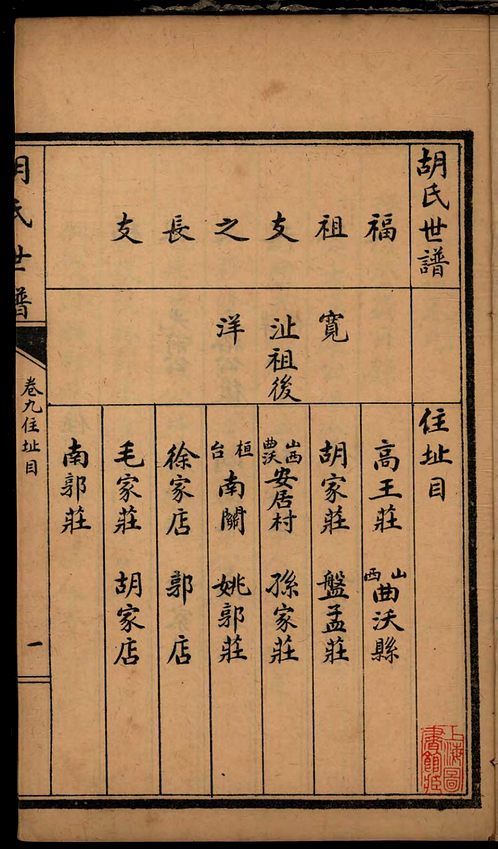 胡氏世譜 住址目
福 高王莊 山西曲沃縣
祖 寬 胡家莊 盤孟莊
支 沚祖後 山西曲沃安居村 孫家莊
之 洋 桓台南關 姚郭莊
長 徐家店 郭家店
支 毛家莊 胡家店
南郭莊
胡氏世譜 卷九住址目 一
上海圖書館藏